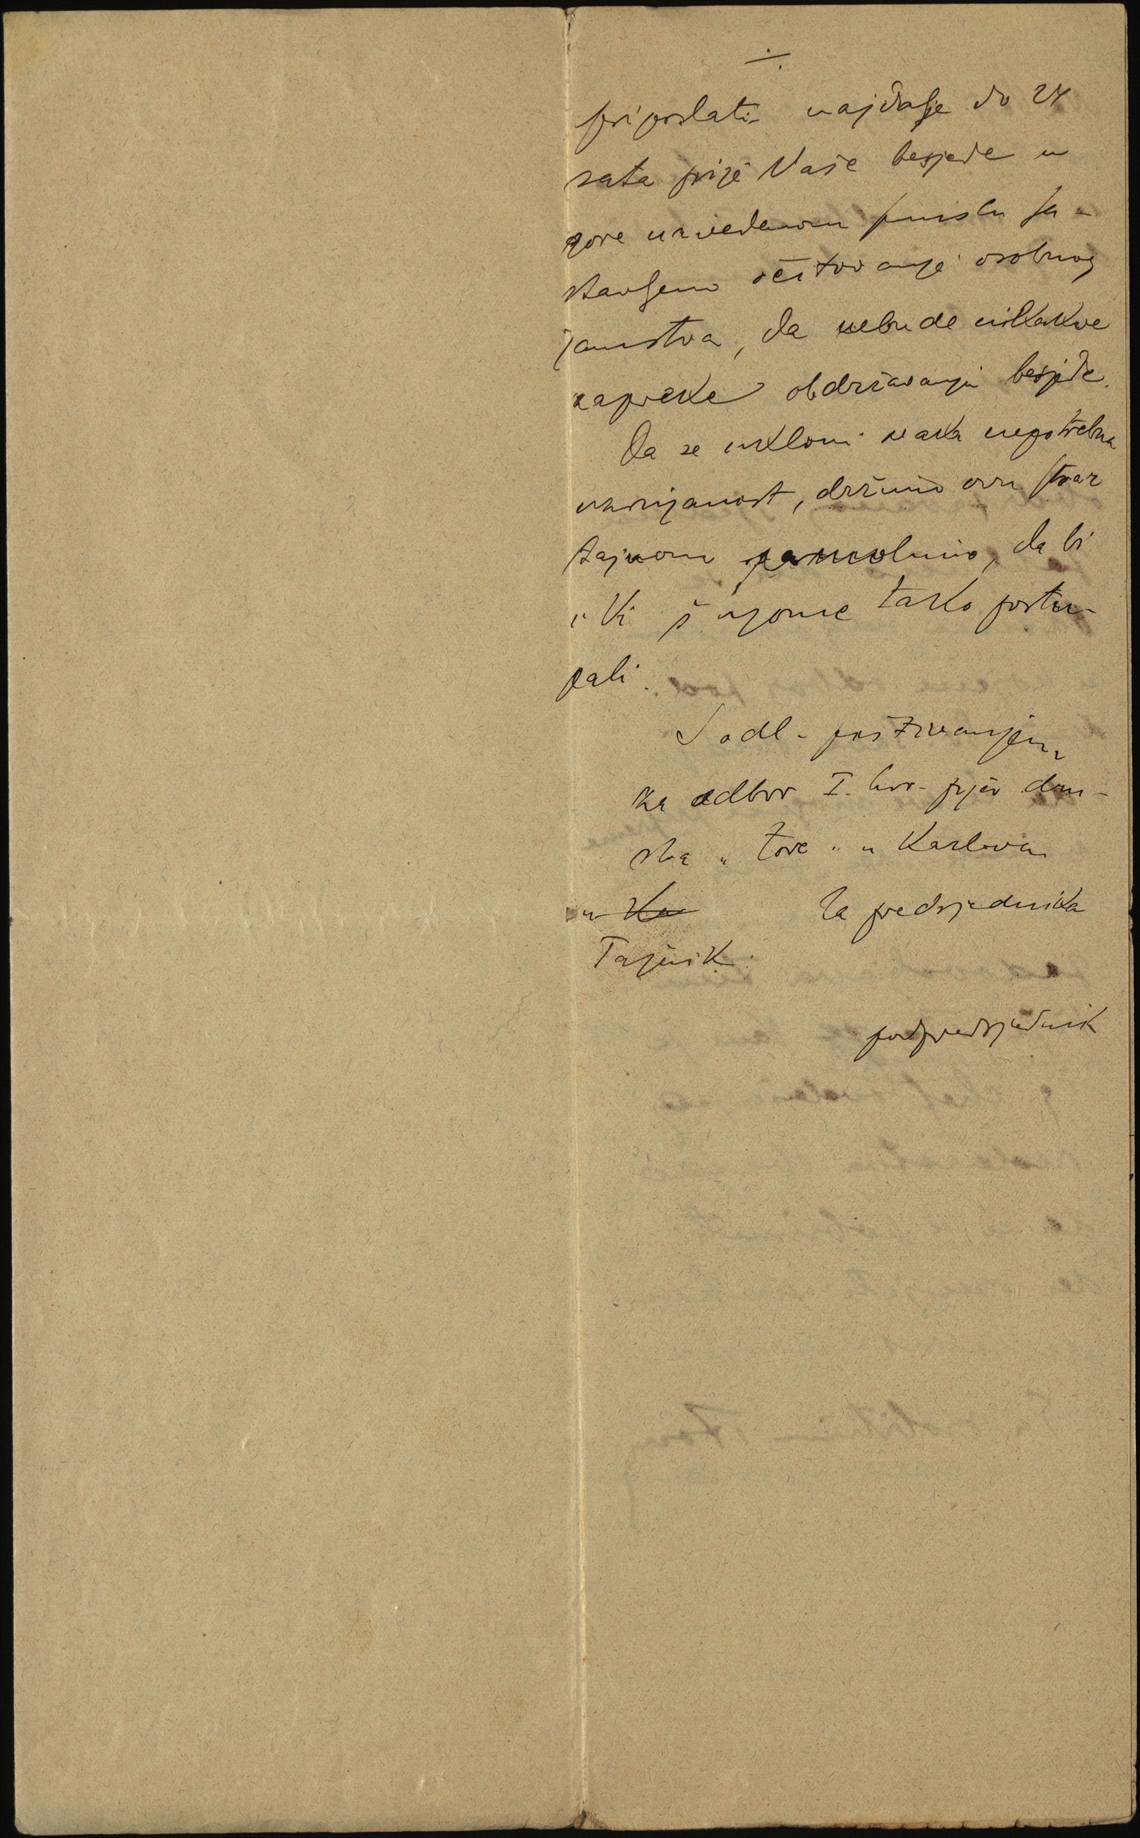 ÷
priposlati najdalje do 24
sata prije Vaše besjede u
gore navedenom smislu sa-
stavljeno očitovanje osobnog
jamstva, da nebude nikakve
zapreke obdržavanju besjede.
Da se ukloni svaka nepotrebna
, držimo ovu stvar
tajnom, da bi
i Vi š njome tako postu-
pali.
S odl. poštivanjem
za odbor I. hrv. pjev. dru-
štva „Zore" u Karlovcu
u Ka
Za predsjednika
Tajnik:
podpredsjednik